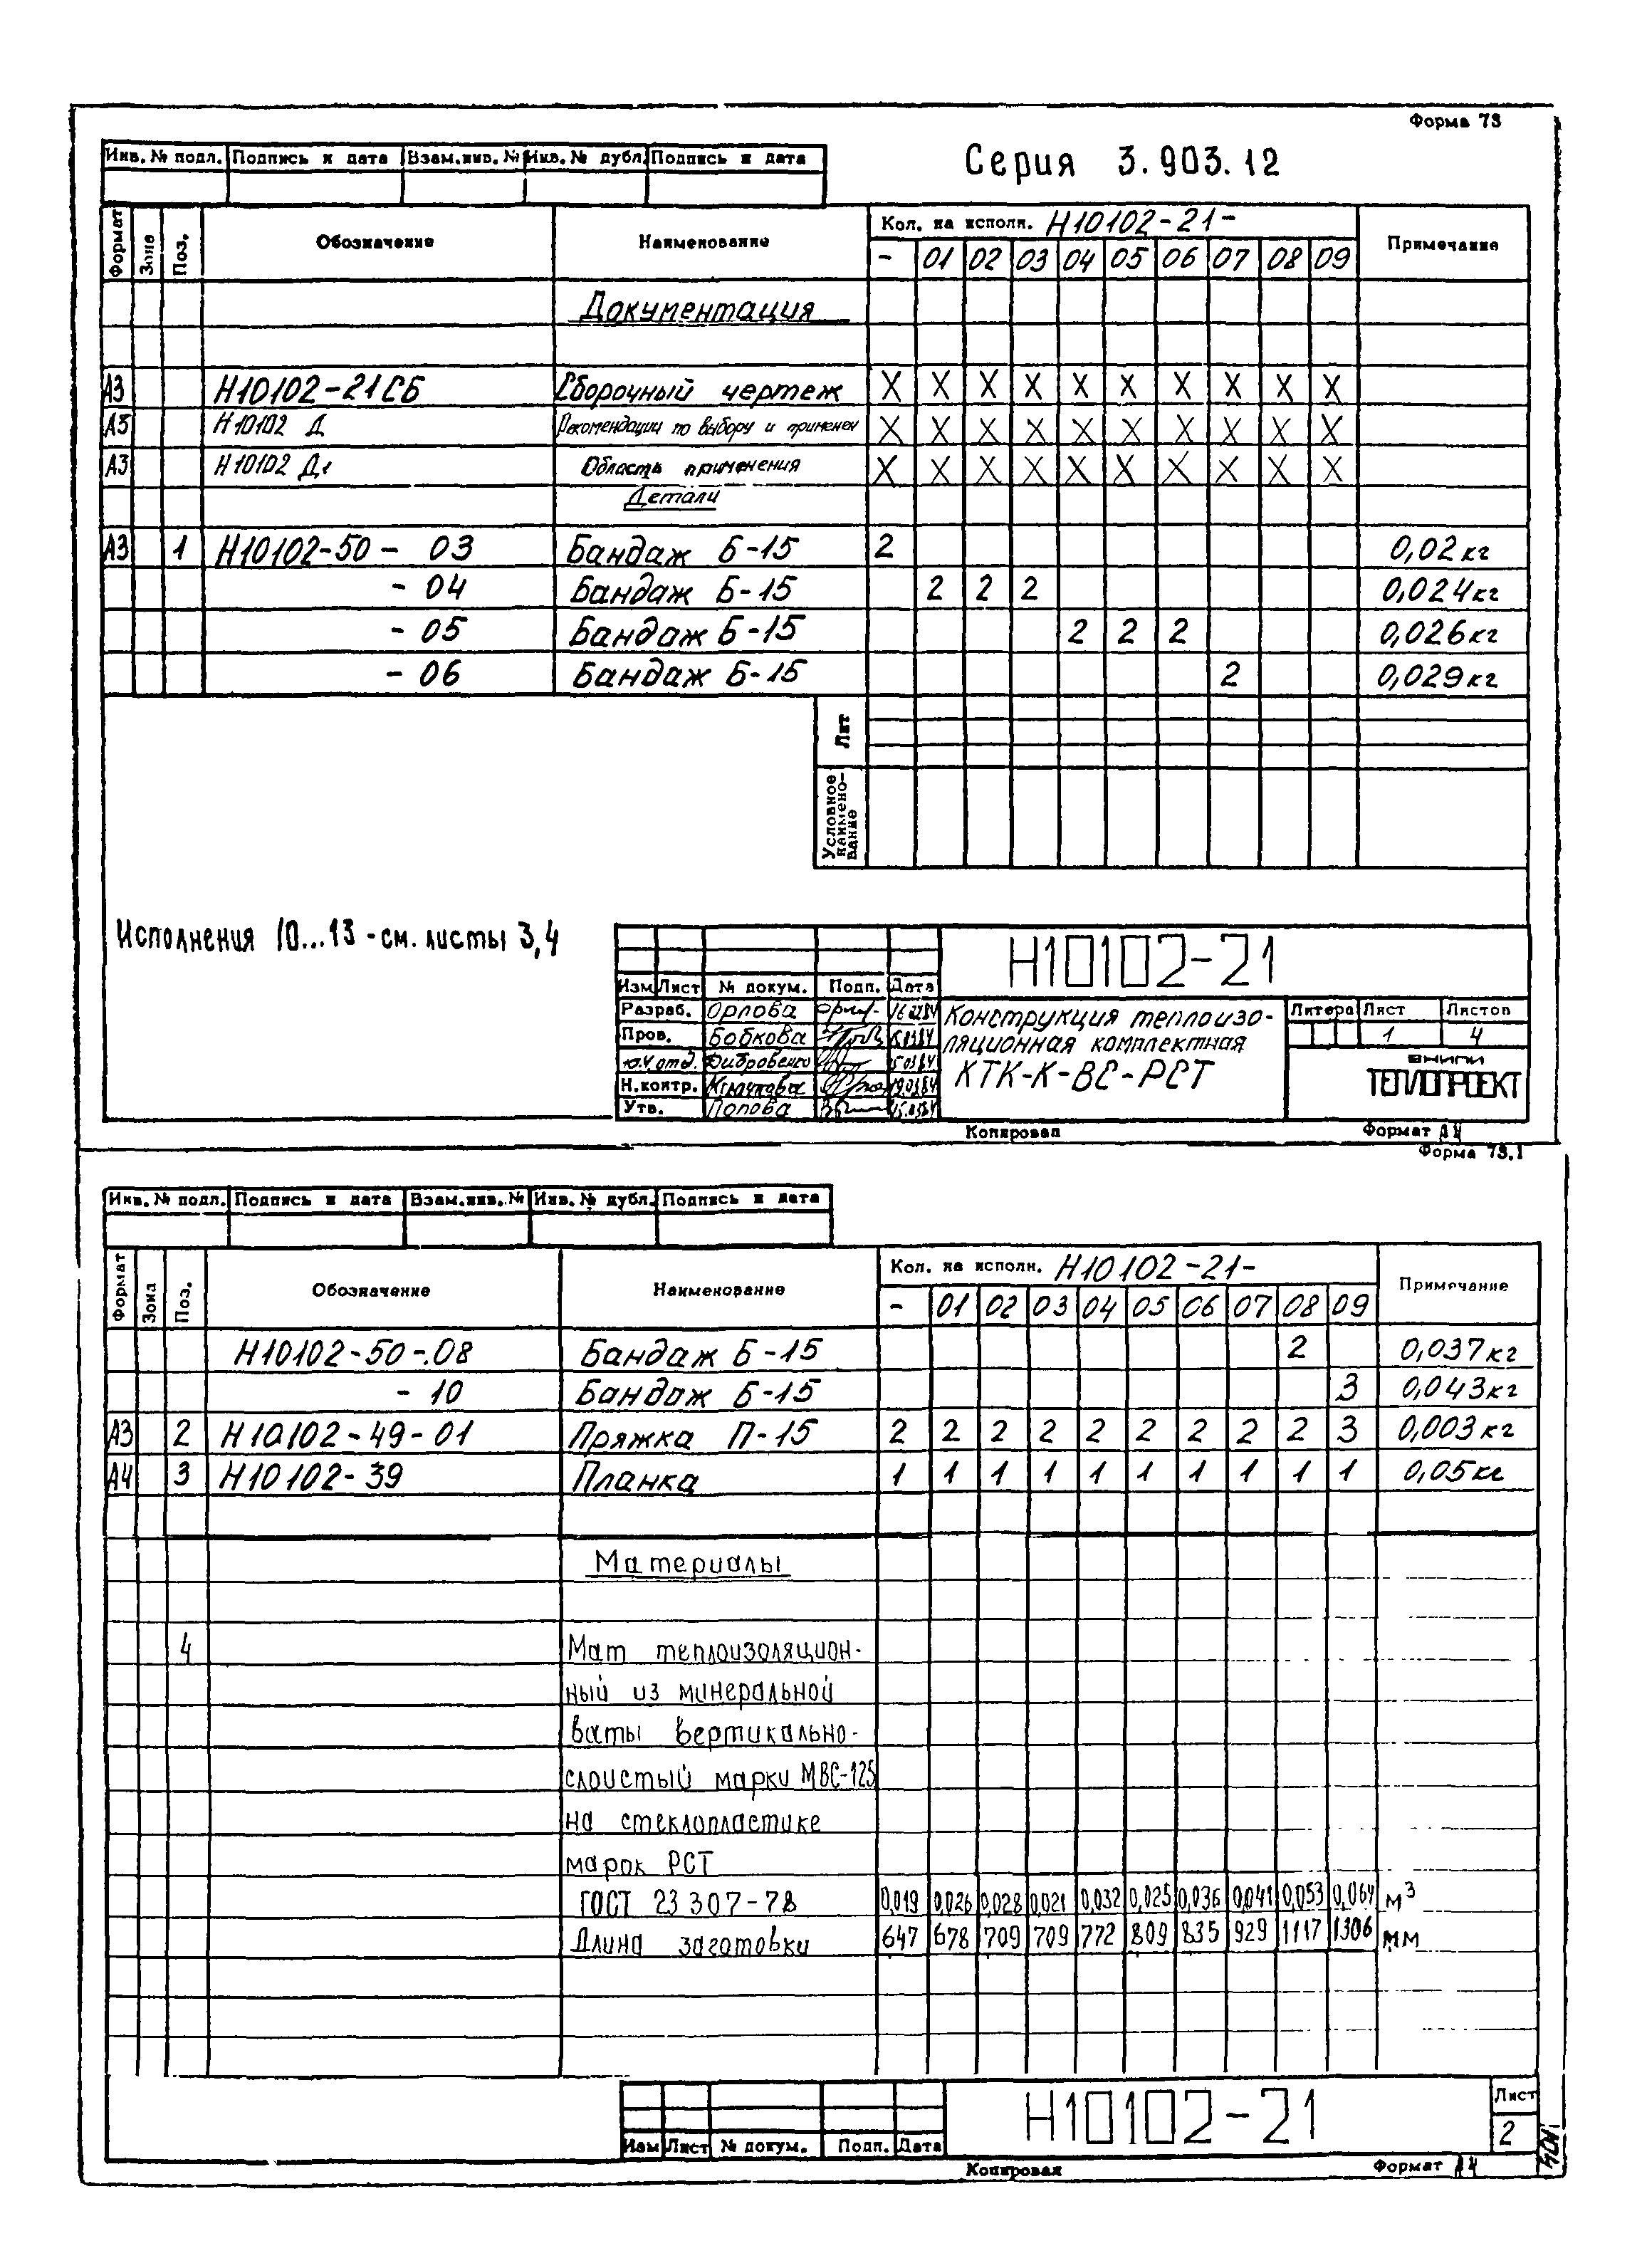 Форма 73
Инв. № подл. Подпись и дата Взам.инв. № Инв. № дубл. Подпись и дата
Серия 3.903.12
Формат Зона Поз. Обозначение Наименование Кол. на исполн. Н10102-21- Примечание
- 01 02 03 04 05 06 07 08 09
Документация
А3 Н10102-21СБ Сборочный чертеж X X X X X X X X X X
А3 Н10102 Д Рекомендации по выбору и применен X X X X X X X X X X
А3 Н10102 Д1 Область применения X X X X X X X X X X
Детали
А3 1 Н10102-50 - 03 Бандаж Б-15 2 0,02 кг
- 04 Бандаж Б-15 2 2 2 0,024 кг
- 05 Бандаж Б-15 2 2 2 0,026 кг
- 06 Бандаж Б-15 2 0,029 кг
Лит
Условное наимено-вание
Исполнения 10...13 - см. листы 3,4
Н10102-21
Изм Лист № докум. Подп. Дата
Разраб. Орлова
Пров. Бобкова
Н.контр.
Утв. Попова
Конструкция теплоизо-
ляционная комплектная
КТК-К-ВС-РСТ
Литера Лист Листов
1 4
ВНИПИ
ТЕПЛОПРОЕКТ
Копировал Формат А4
Форма 73.1
Инв. № подл. Подпись и дата Взам.инв. № Инв. № дубл. Подпись и дата
Формат Зона Поз. Обозначение Наименование Кол. на исполн. Н10102-21- Примечание
- 01 02 03 04 05 06 07 08 09
Н10102-50-08 Бандаж Б-15 2 0,037 кг
- 10 Бандаж Б-15 3 0,043 кг
А3 2 Н10102-49-01 Пряжка П-15 2 2 2 2 2 2 2 2 2 3 0,003 кг
А4 3 Н10102-39 Планка 1 1 1 1 1 1 1 1 1 1 0,05 кг
Материалы
4 Мат теплоизоляцион-
ный из минеральной
ваты вертикально-
слоистый марки МВС-125
на стеклопластике
марок РСТ
ГОСТ 23 307-78 0,019 0,026 0,028 0,021 0,032 0,025 0,036 0,041 0,053 0,064 м³
Длина заготовки 647 678 709 709 772 809 835 929 1117 1306 мм
Н10102-21
Лист
2
Изм Лист № докум. Подп. Дата
Копировал Формат А4